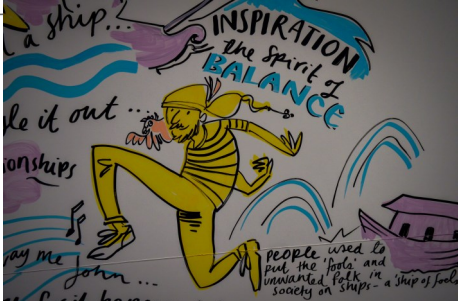 a ship...
INSPIRATION
the spirit of
BALANCE
le it out ...
ionships
ay me
John ...
people used to
put the 'fools' and
unwanted folk in
society on ships - a 'ship of fools